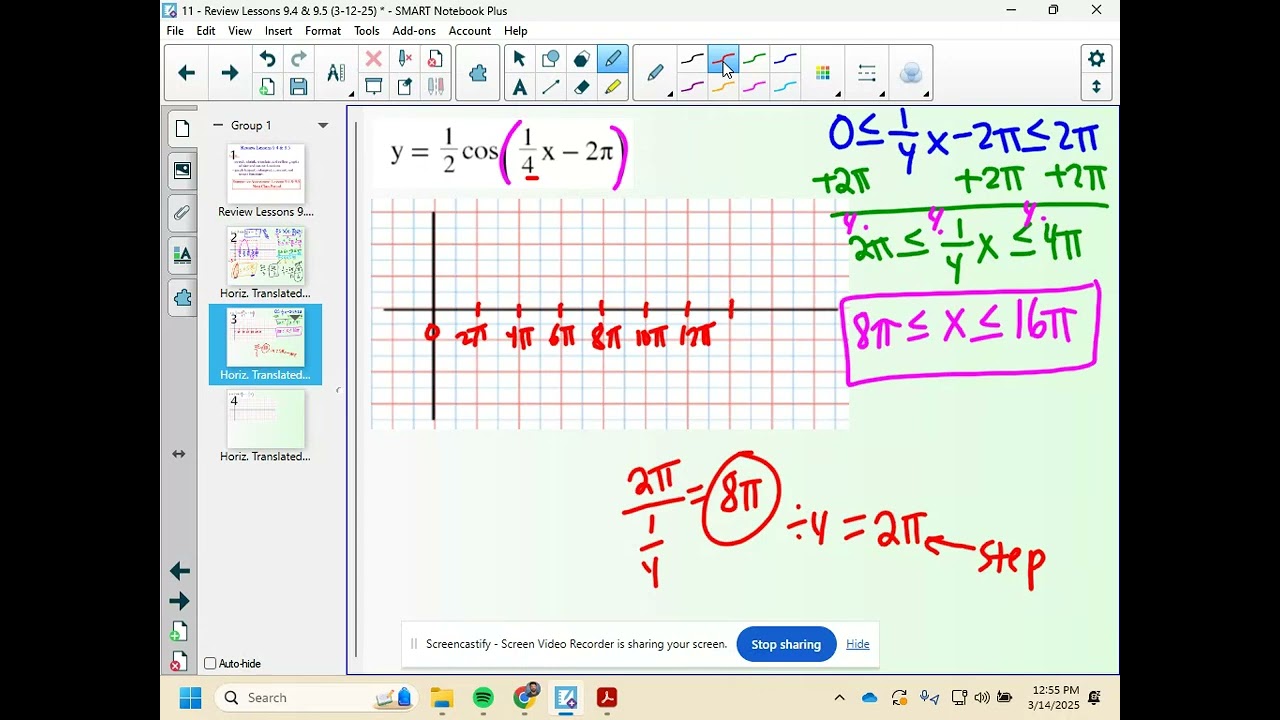 11 - Review Lessons 9.4 & 9.5 (3-12-25) * - SMART Notebook Plus
File Edit View Insert Format Tools Add-ons Account Help
Group 1
1
Review Lessons 9....
2
Horiz. Translated...
3
Horiz. Translated...
4
Horiz. Translated...
Auto-hide
y = 1/2 cos(1/4 x − 2π)
0 ≤ 1/4 x − 2π ≤ 2π
+2π +2π +2π
4· 4· 4·
2π ≤ 1/4 x ≤ 4π
8π ≤ x ≤ 16π
0 2π 4π 6π 8π 10π 12π
2π / 1/4 = 8π ÷ 4 = 2π ← step
Screencastify - Screen Video Recorder is sharing your screen.
Stop sharing
Hide
Search
12:55 PM
3/14/2025